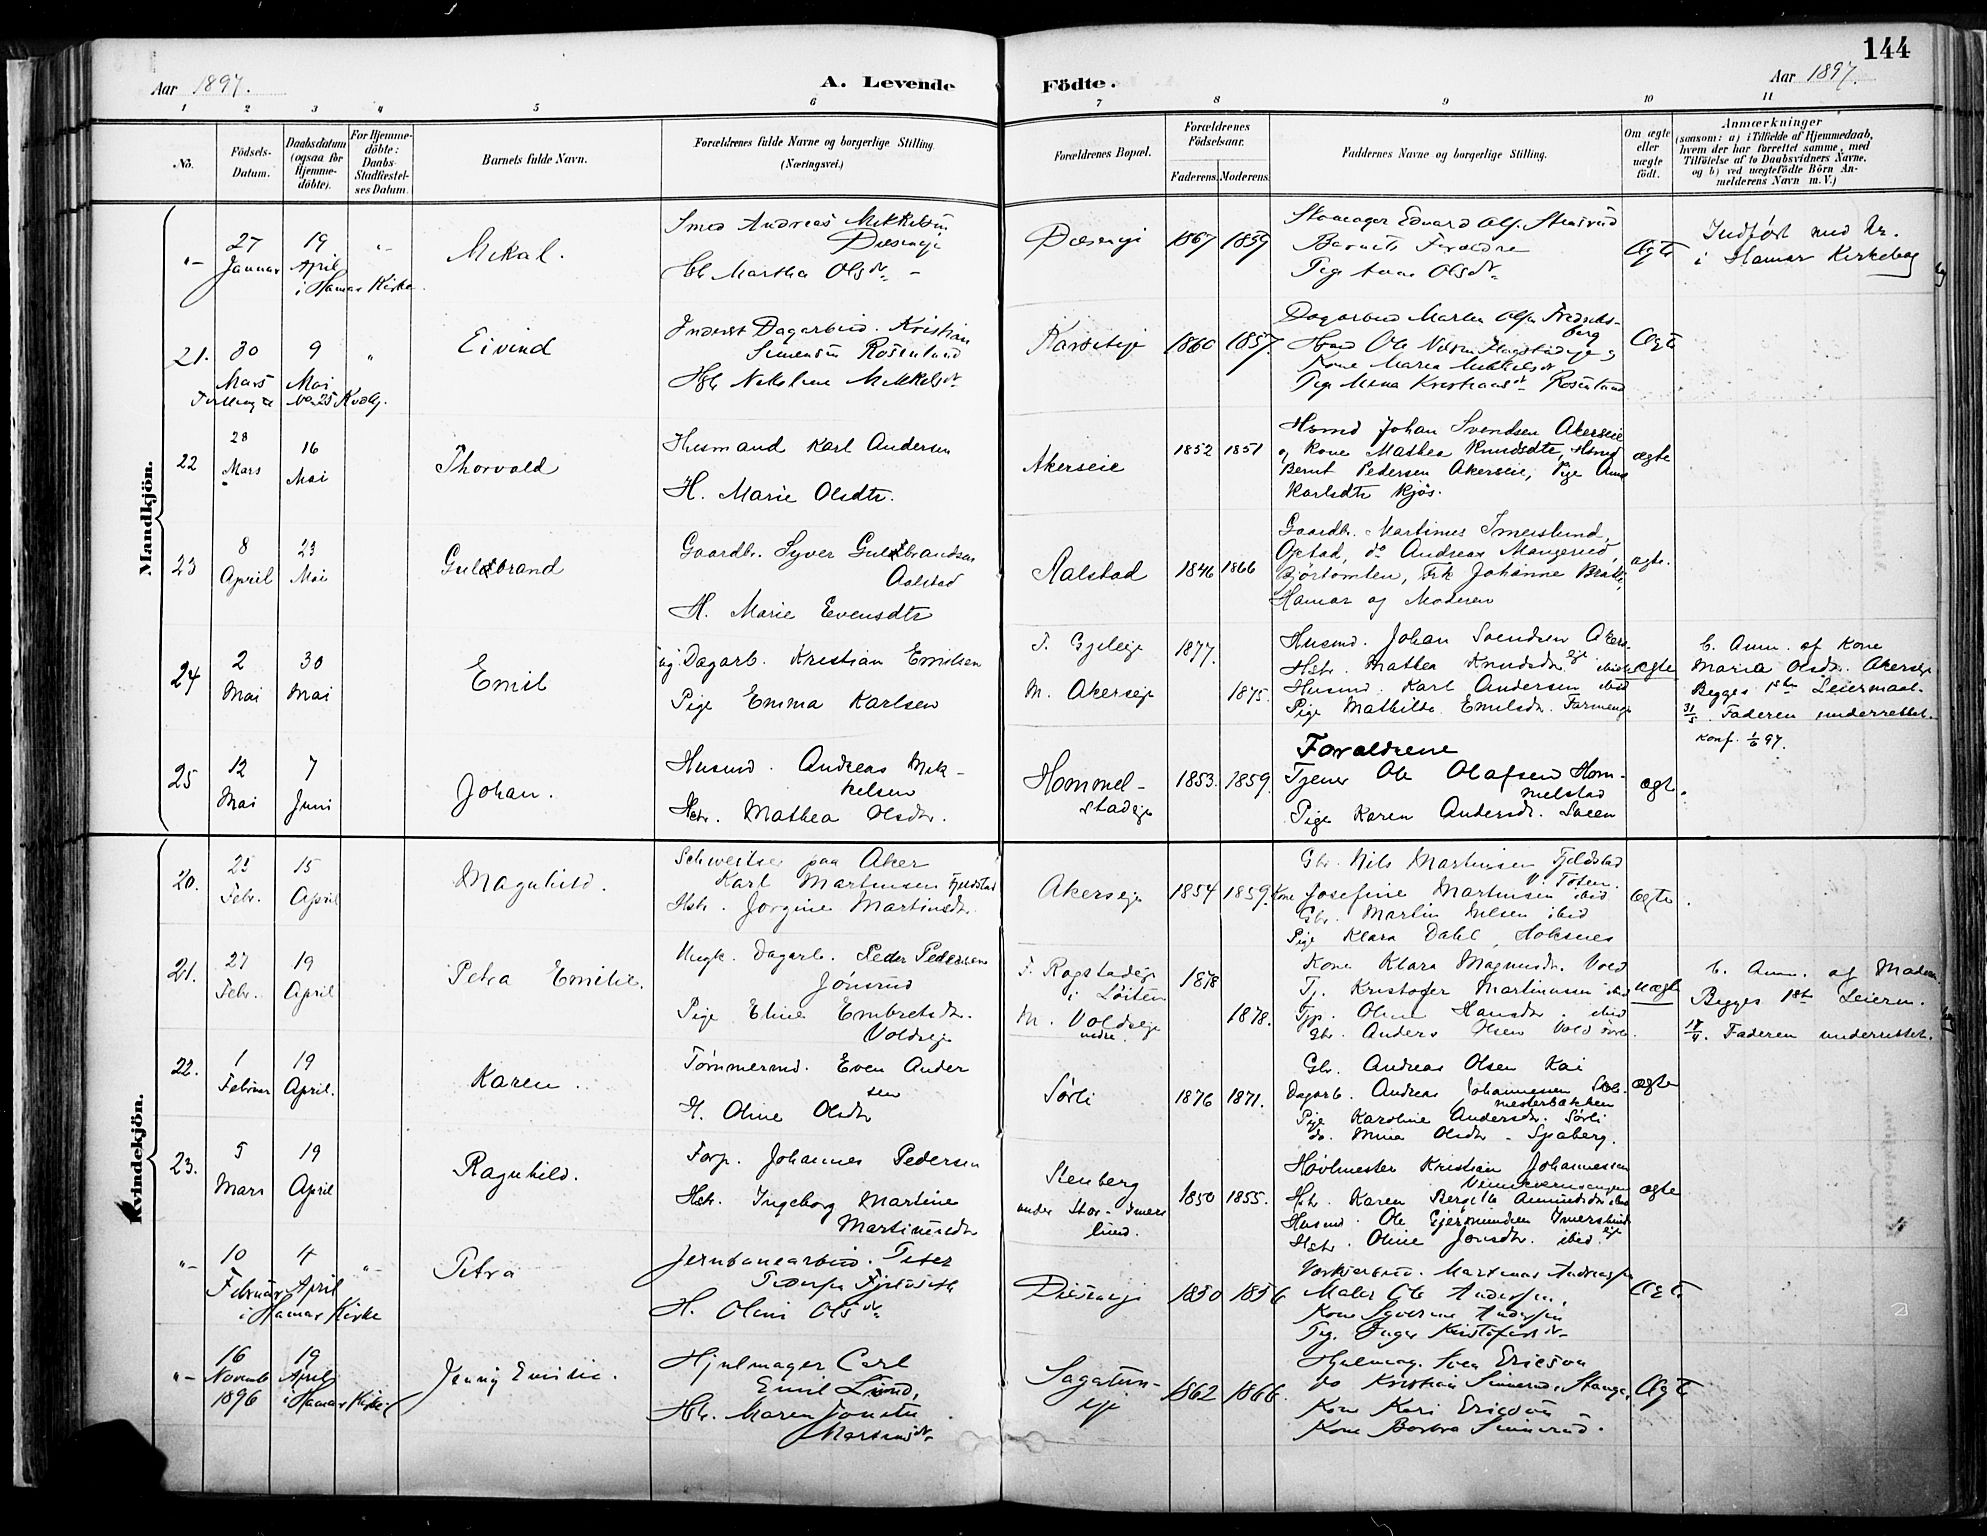 144
Aar 1897.
A. Levende
Födte.
Aar 1897.
1 2 3 4 5 6 7 8 9 10 11
No.
Födsels-
Datum.
Daabsdatum
(ogsaa för
Hjemme-
döbte).
For Hjemme-
döbte:
Daabs-
Stadfæstel-
ses Datum.
Barnets fulde Navn.
Forældrenes fulde Navne og borgerlige Stilling
(Næringsvei.)
Forældrenes Bopæl.
Forældrenes
Födselsaar.
Faderens.
Moderens.
Faddernes Navne og borgerlige Stilling.
Om ægte
eller
uægte
født.
Anmærkninger
(saasom: a) i Tilfælde af Hjemmedaab,
hvem der har forrettet samme, med
Tilföielse af to Daabsvidners Navne.
og b) ved uægtefödte Börn An-
melderens Navn m. V.)
Mandkjön.
"-
27
Januar
19
April
i Hamar Kirke.
"-
Mikal.
Smed Andreas Mikkelsen
Diseneje
Martha Olsdtr
Diseneje
1867
1859
Skomager Edvard Olsen
Barnets Forældre
Pige Anne Olsdtr
Ægte
Indført med Nr.
i Hamar Kirkebog
21.
30
Mars
9
Mai
"
Eivind
Inderst Dagarbeid. Kristian
Simensen Rosenlund
Nikoline Mikkelsdtr
1860
1857.
Ole Nilsen
Kone Maria Mikkelsdtr
Rosenlund
Ægte
22
28
Mars
16
Mai
Thorvald
Husmand Karl Andersen
H. Marie Olsdtr.
Akerseie
1852
1851
Hsmd Johan Svendsen Akerseie
og Kone Mathea Knudsdtr, Hsmd
Bernt Pedersen Akerseie, Pige Anna
Karlsdtr Kjøs.
ægte
23
8
April
23
Mai
Guldbrand
Gaardbr. Syver Guldbrandsen
Aalstad
H. Marie Evensdtr
Aalstad
1846
1866
Gaardbr. Martinus Imerslund,
Opstad, do Andreas Mangerud,
Bjørtomten, Frk Johanne
Hamar og Moderen
ægte.
24
2
Mai
30
Mai
Emil
Dagarb. Kristian Emilsen
Pige Emma Karlsen
F.
M. Akerseje
1877.
1875.
Husmd. Johan Svendsen Akers-
eje
Hstr. Mathea Knudsdtr ibid
Husmd. Karl Andersen ibid
Pige Mathilde Emilsdtr.
uægte
b. Anm. af Kone
Maria Olsdtr. Akerseje
Begges 1ste Leiermaal.
31/5. Faderen underrettet.
Konf. 1/6 97.
25
12
Mai
7
Juni
Johan.
Husmd. Andreas Mik-
kelsen
Hstr. Mathea Olsdtr.
Hommel-
stadeje
1853.
1859.
Forældrene
Tjener Ole Olafsen Hom-
melstad
Pige Karen Andersdtr. Sveen
ægte
Kvindekjön.
20.
25
Febr.
15
April
Magnhild.
Schweitser paa Aker
Karl Martinsen Fjeldstad
Hstr. Jørgine Martinsdtr
Akerseje
1854
1859.
Gbr. Nils Martinsen Fjeldstad
V. Toten.
Kone Josefine Martinsen ibid
Gbr. Martin Nilsen ibid
Pige Klara Dahl, Hoksnes
ægte.
21.
27
Febr.
19
April
Petra Emilie.
Ungk. Dagarb. Peder Pedersen
Jönsrud
Pige Eline Embretsdtr.
Voldseje
F. Rogstadeje
i Löiten
M. Voldseje
nedre.
1878
1878.
Kone Klara Magnusdtr. Vold
Tj. Kristofer Martinusen ibid
Tjp. Oline Hansdtr. ibid
Gbr. Anders Olsen Vold
uægte
b. Anm. af Moderen
Begges 1ste Leierm.
19/4. Faderen underrettet.
22.
1
Februar
19
April.
Karen.
Tømmermd. Even Ander
sen
H. Oline Olsdtr
Sørli
1876
1871.
Gbr. Andreas Olsen Kai
Dagarb. Andreas Johannesen
Pige Karoline Andersdtr. Sørli
do. Mina Olsdtr. Sjøberg.
ægte
23.
5
Mars
19
April
Ragnhild.
Forp. Johannes Pedersen
Hstr. Ingeborg Martine
Martinusdtr
Stenberg
under Stor-Imers
lund.
1850
1855.
Høvlmester Kristian Johannessen
Hstr. Karen Bergitte Amundsdtr ibid
Husmd. Ole Gjermundsen Imerslund
eje
Hstr. Oline Jonsdtr. ibid
ægte
"-
10
Februar
4
April
i Hamar Kirke
"-
Petra
Jernbanearbeid. Peter
H. Olini Olsdtr
Diseneje
1850
1856
Martinus Andreassen
Maler Ole Anderssen,
Kone Syverine Anderssen
Pig. Inger Kristofersdtr
Ægte
"-
16
Novemb
1896
19
April
i Hamar Kirke
Jenny Emilie.
Hjulmager Carl
Emil Lund,
Hstr. Maren Jonette
Martinsdtr
Sagatun-
eje
1862
1866.
Hjulmag. Sven Ericson
do Kristian Simerud, Stange,
Kone Kari Ericson
Kone Barbra Simerud.
Ægte